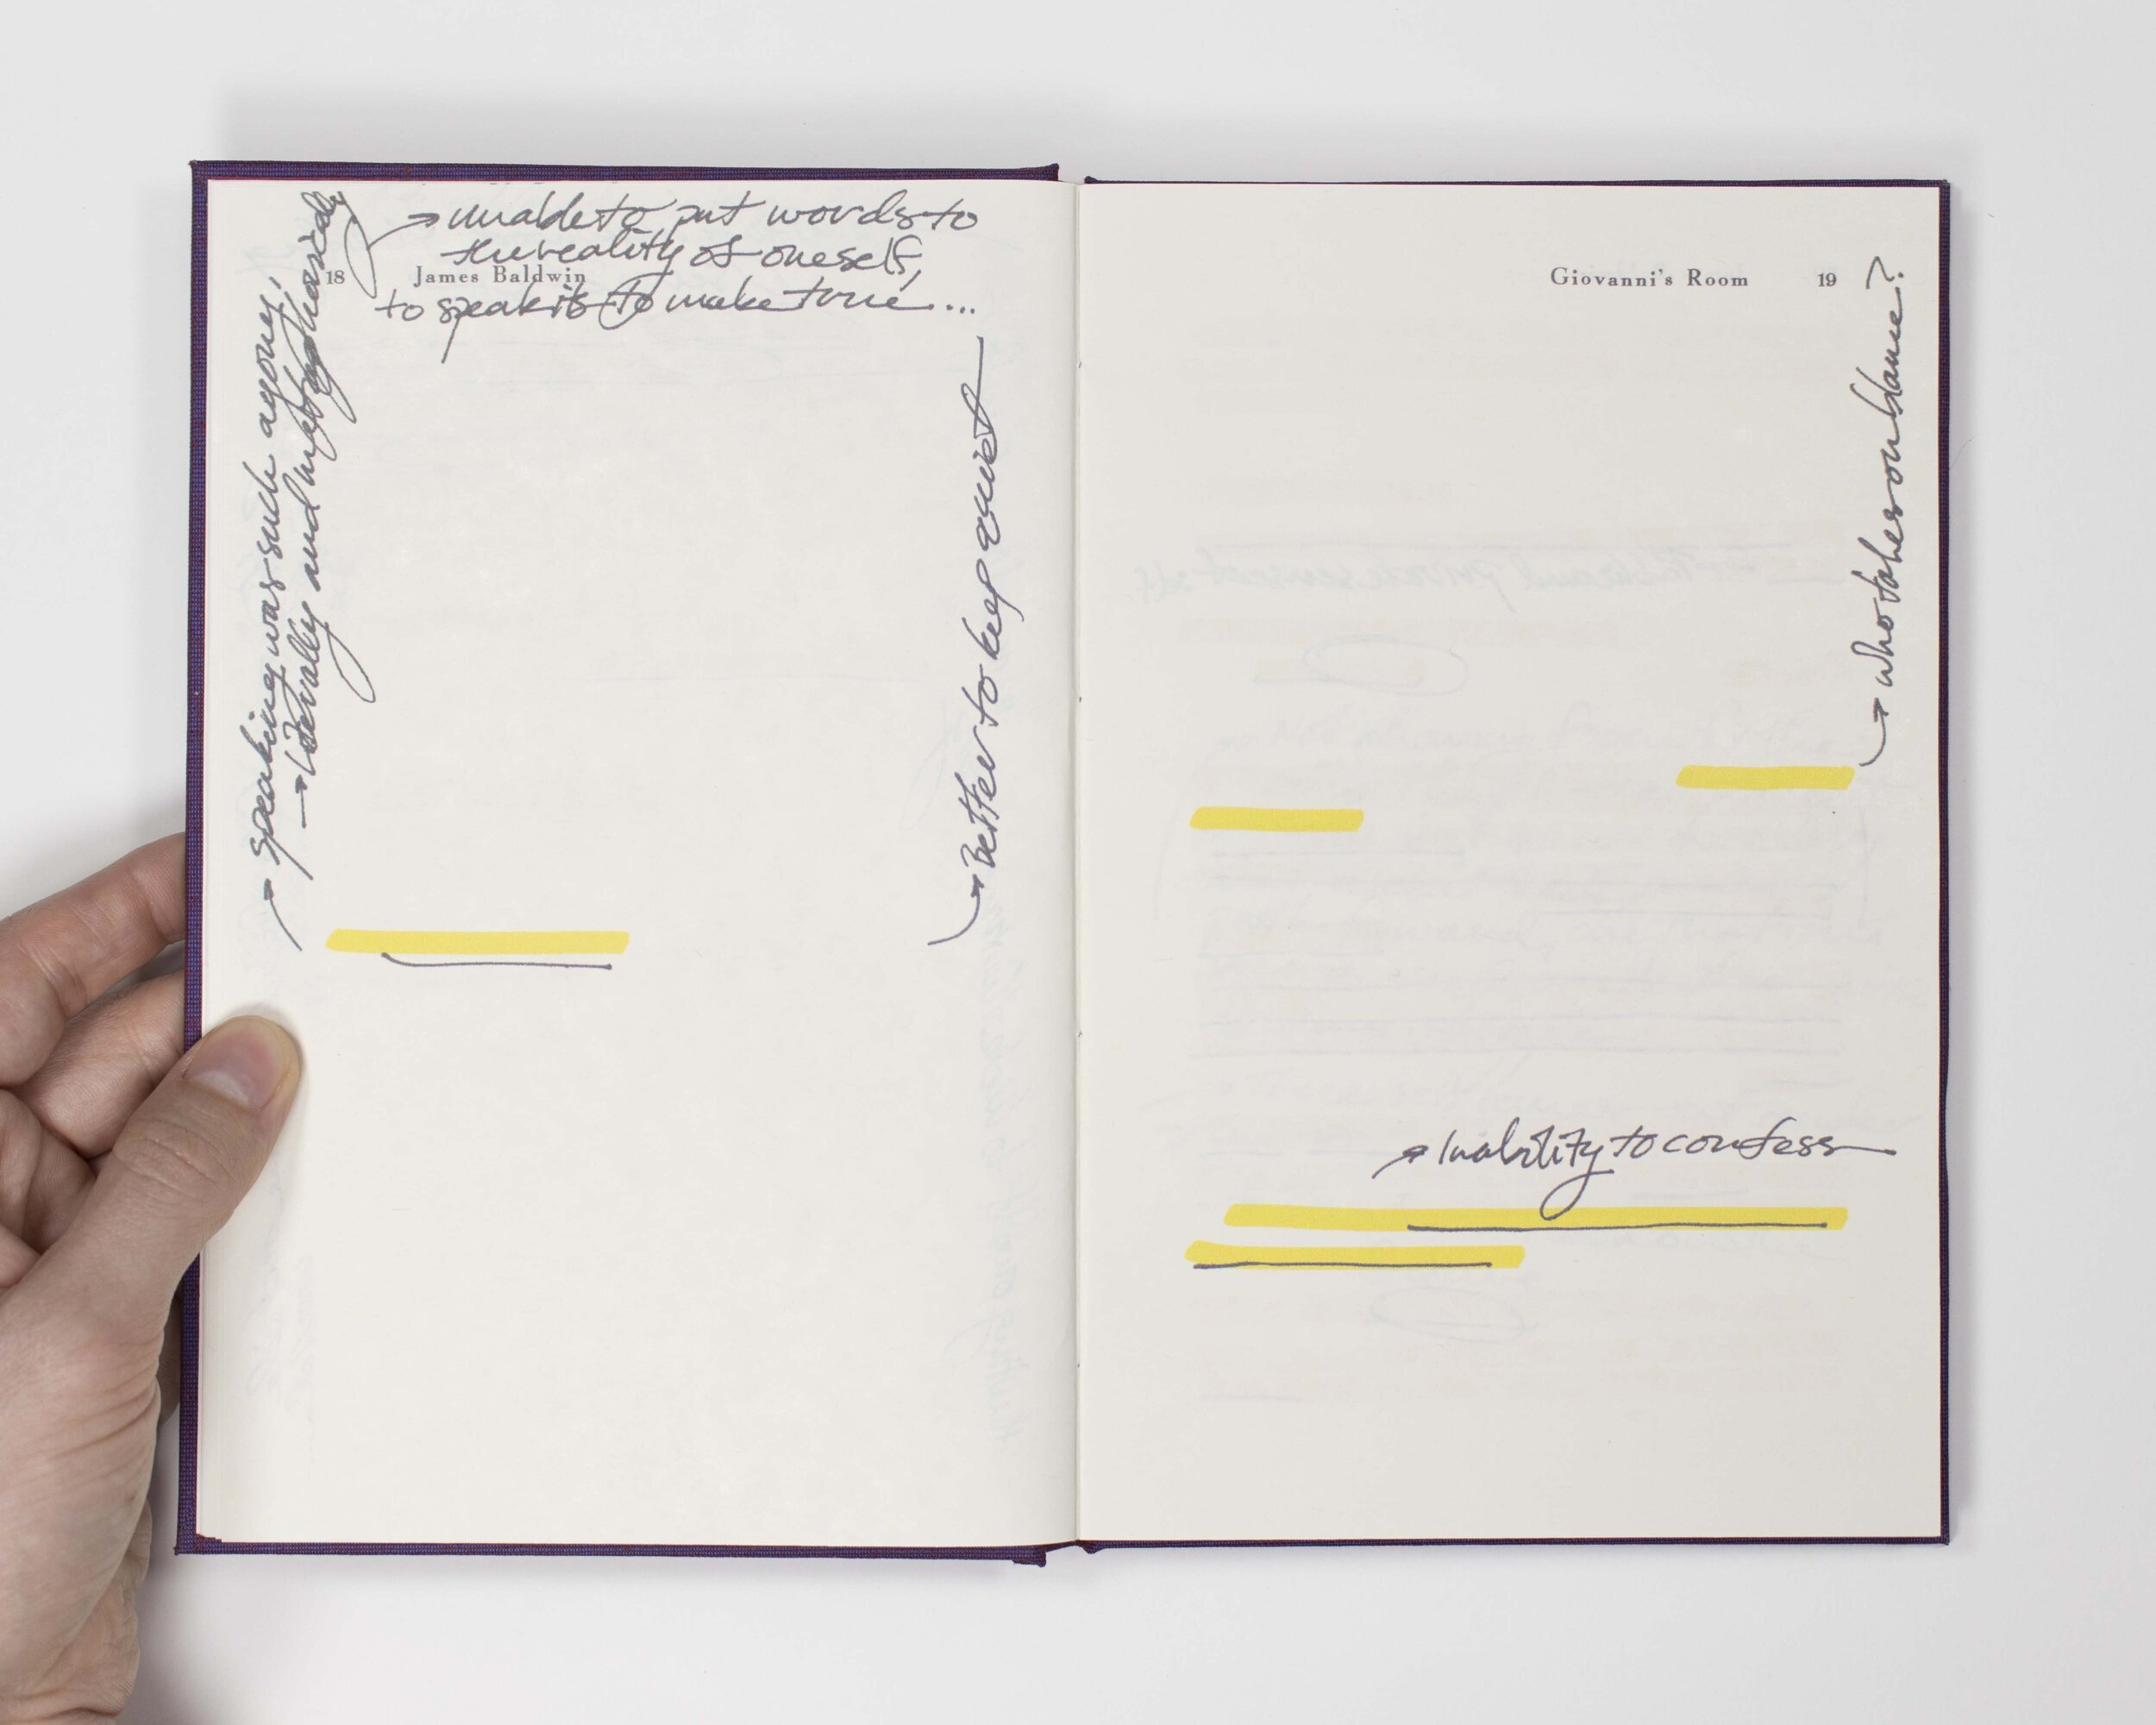 → unable to put words to
the reality of oneself,
18 James Baldwin
to speak is to make true...
→ speaking was such agony,
→ literally and metaphorically
→ Better to keep quiet
Giovanni's Room 19
→ who takes on blame?
→ Inability to confess